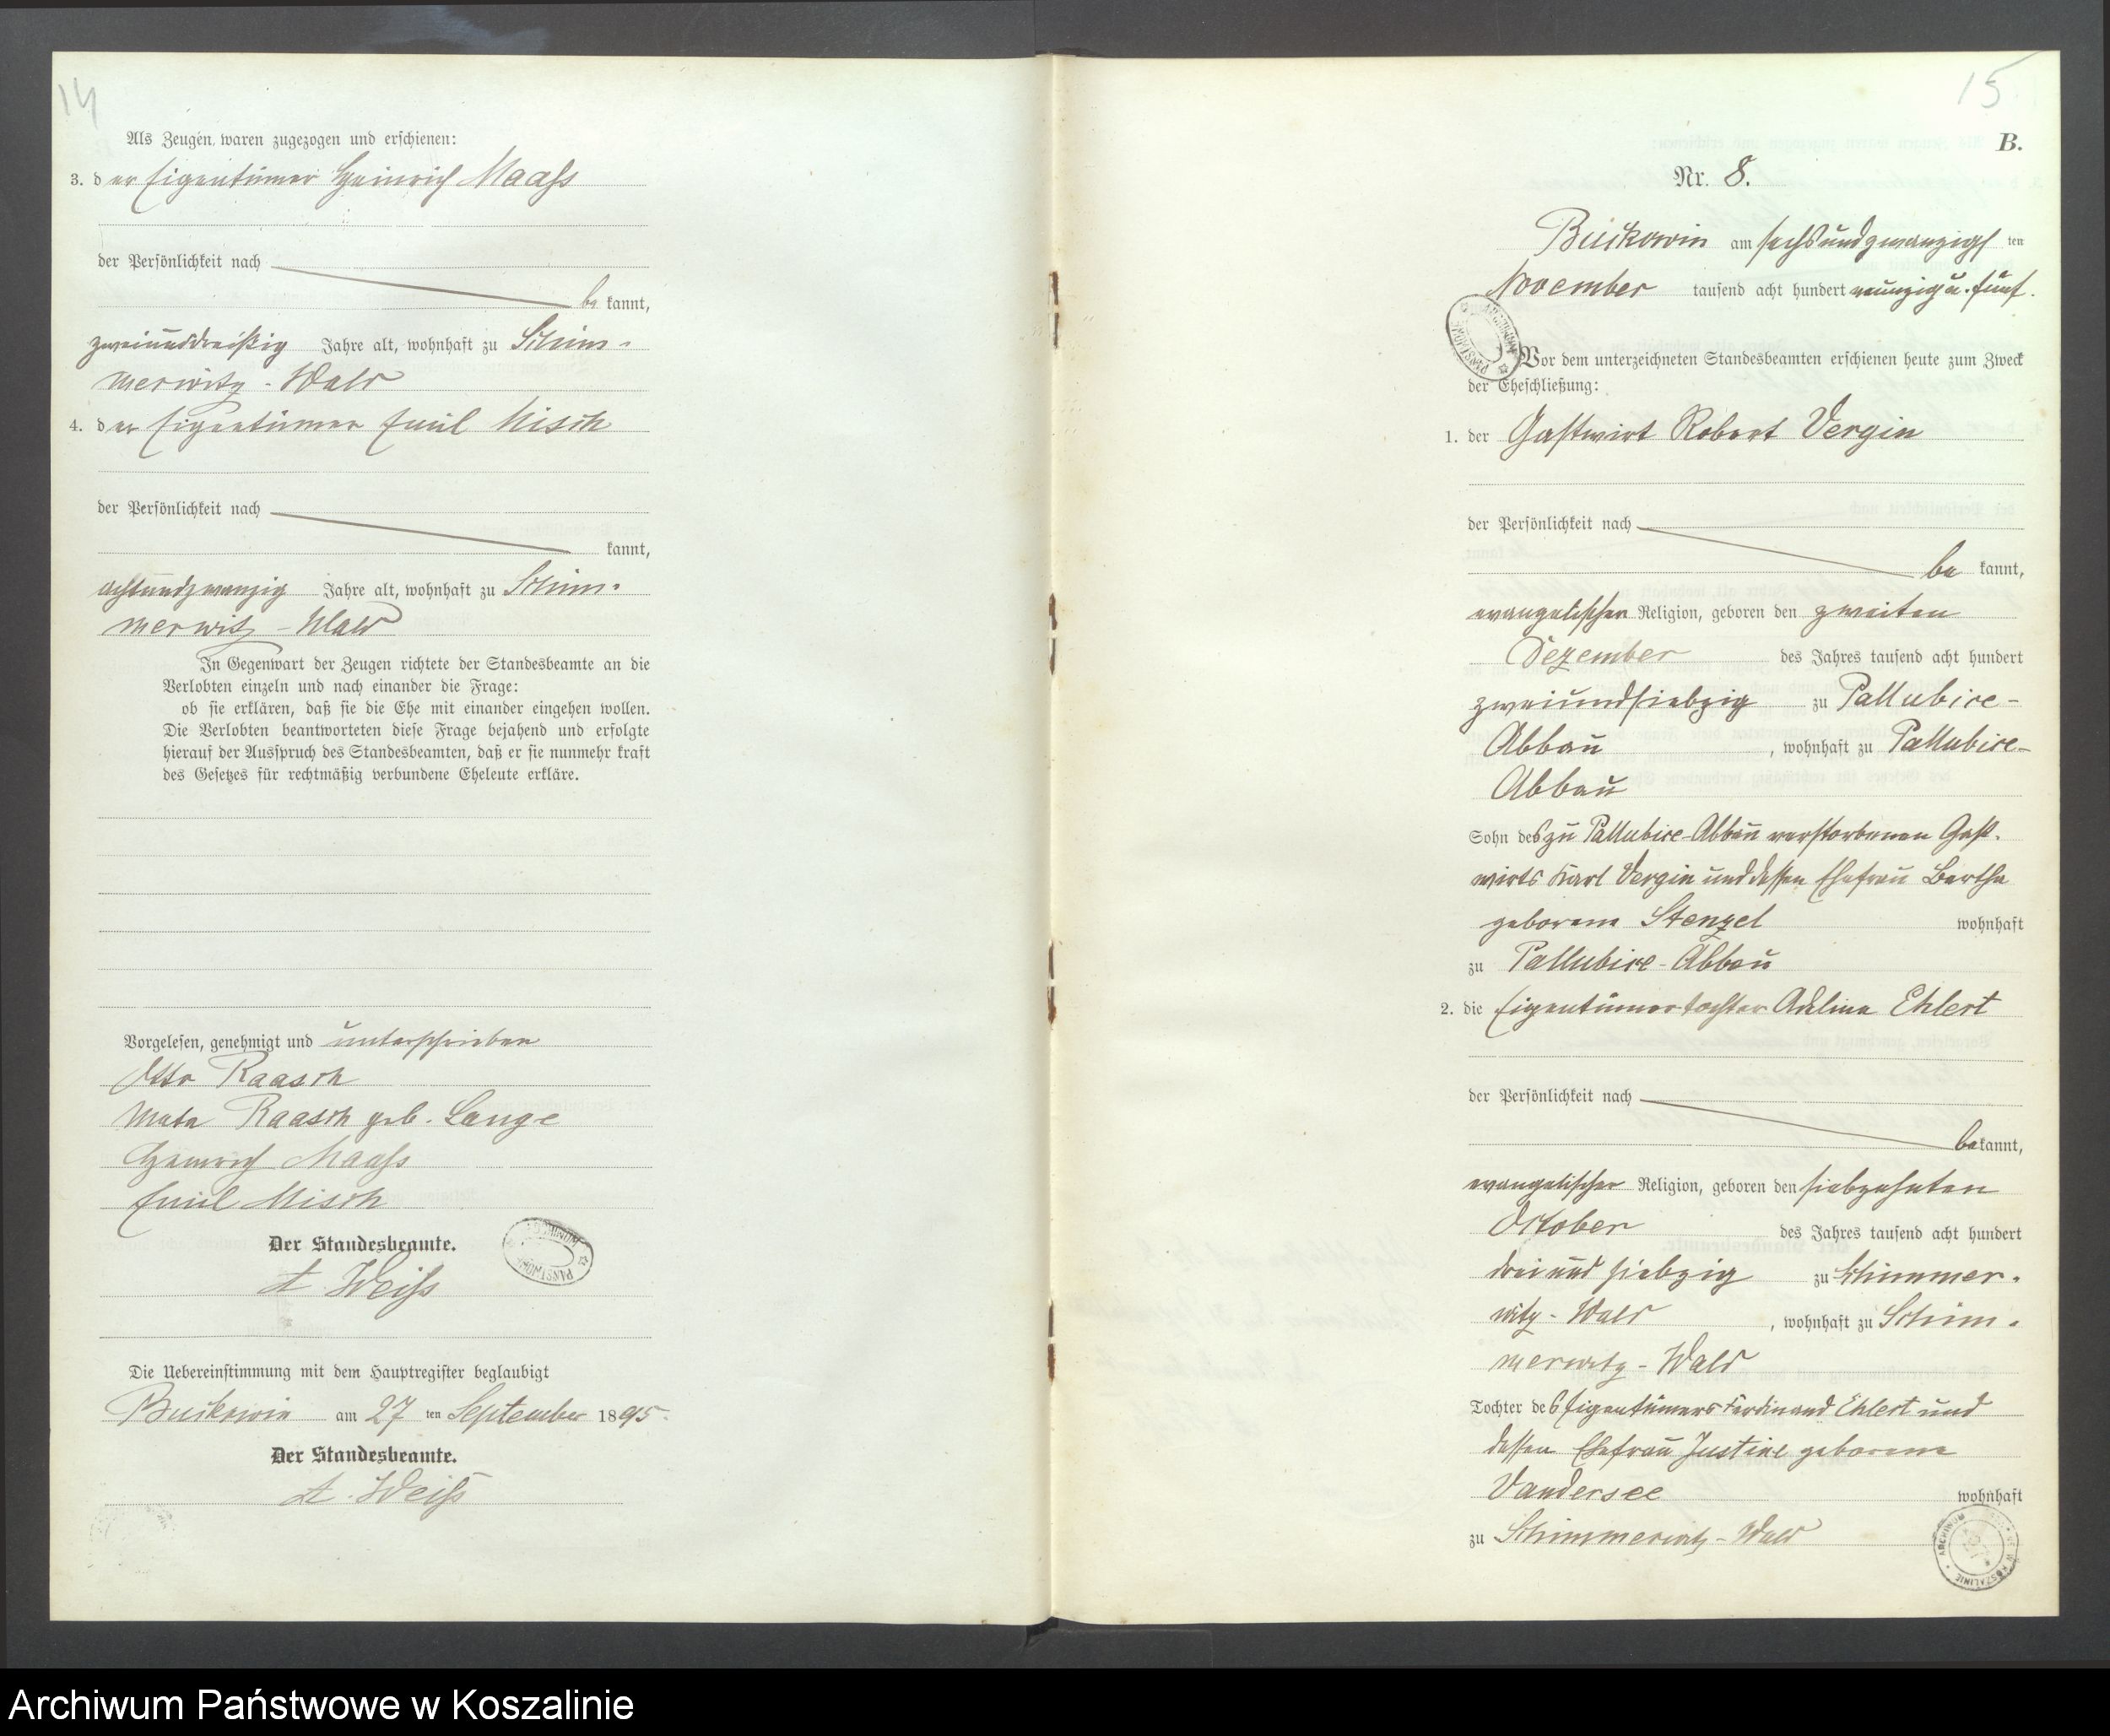 14
Als Zeugen waren zugezogen und erschienen:
3. der Eigentümer Heinrich Maaß
der Persönlichkeit nach
be kannt,
zweiunddreißig Jahre alt, wohnhaft zu Schim-
merwitz-Wald
4. der Eigentümer Emil Misch
der Persönlichkeit nach
kannt,
achtundzwanzig Jahre alt, wohnhaft zu Schim-
merwitz-Wald
In Gegenwart der Zeugen richtete der Standesbeamte an die
Verlobten einzeln und nach einander die Frage:
ob sie erklären, daß sie die Ehe mit einander eingehen wollen.
Die Verlobten beantworteten diese Frage bejahend und erfolgte
hierauf der Ausspruch des Standesbeamten, daß er sie nunmehr kraft
des Gesetzes für rechtmäßig verbundene Eheleute erkläre.
Vorgelesen, genehmigt und unterschrieben
Otto Raasch
Raasch geb. Lange
Heinrich Maaß
Emil Misch
Der Standesbeamte.
A. Weiß
ARCHIWUM PAŃSTWOWE
Die Uebereinstimmung mit dem Hauptregister beglaubigt
Buckowin am 27 ten September 1895.
Der Standesbeamte.
A. Weiß
15
B.
Nr. 8.
Buckowin am sechsundzwanzigsten
November tausend acht hundert neunzig u. fünf.
ARCHIWUM PAŃSTWOWE
Vor dem unterzeichneten Standesbeamten erschienen heute zum Zweck
der Eheschließung:
1. der Gastwirt Robert Vergin
der Persönlichkeit nach
be kannt,
evangelischer Religion, geboren den zweiten
Dezember des Jahres tausend acht hundert
zweiundsiebzig zu Pallubice-
Abbau, wohnhaft zu Pallubice-
Abbau
Sohn des zu Pallubice-Abbau verstorbenen Gast-
wirts Karl Vergin und dessen Ehefrau Bertha
geborene Stenzel wohnhaft
zu Pallubice-Abbau
2. die Eigentümertochter Adeline Ehlert
der Persönlichkeit nach
bekannt,
evangelischer Religion, geboren den siebzehnten
October des Jahres tausend acht hundert
drei und siebzig zu Schimmer-
witz-Wald, wohnhaft zu Schim-
merwitz-Wald
Tochter des Eigentümers Ferdinand Ehlert und
dessen Ehefrau Justine geborene
Vandersee wohnhaft
zu Schimmerwitz-Wald
ARCHIWUM W KOSZALINIE
Archiwum Państwowe w Koszalinie